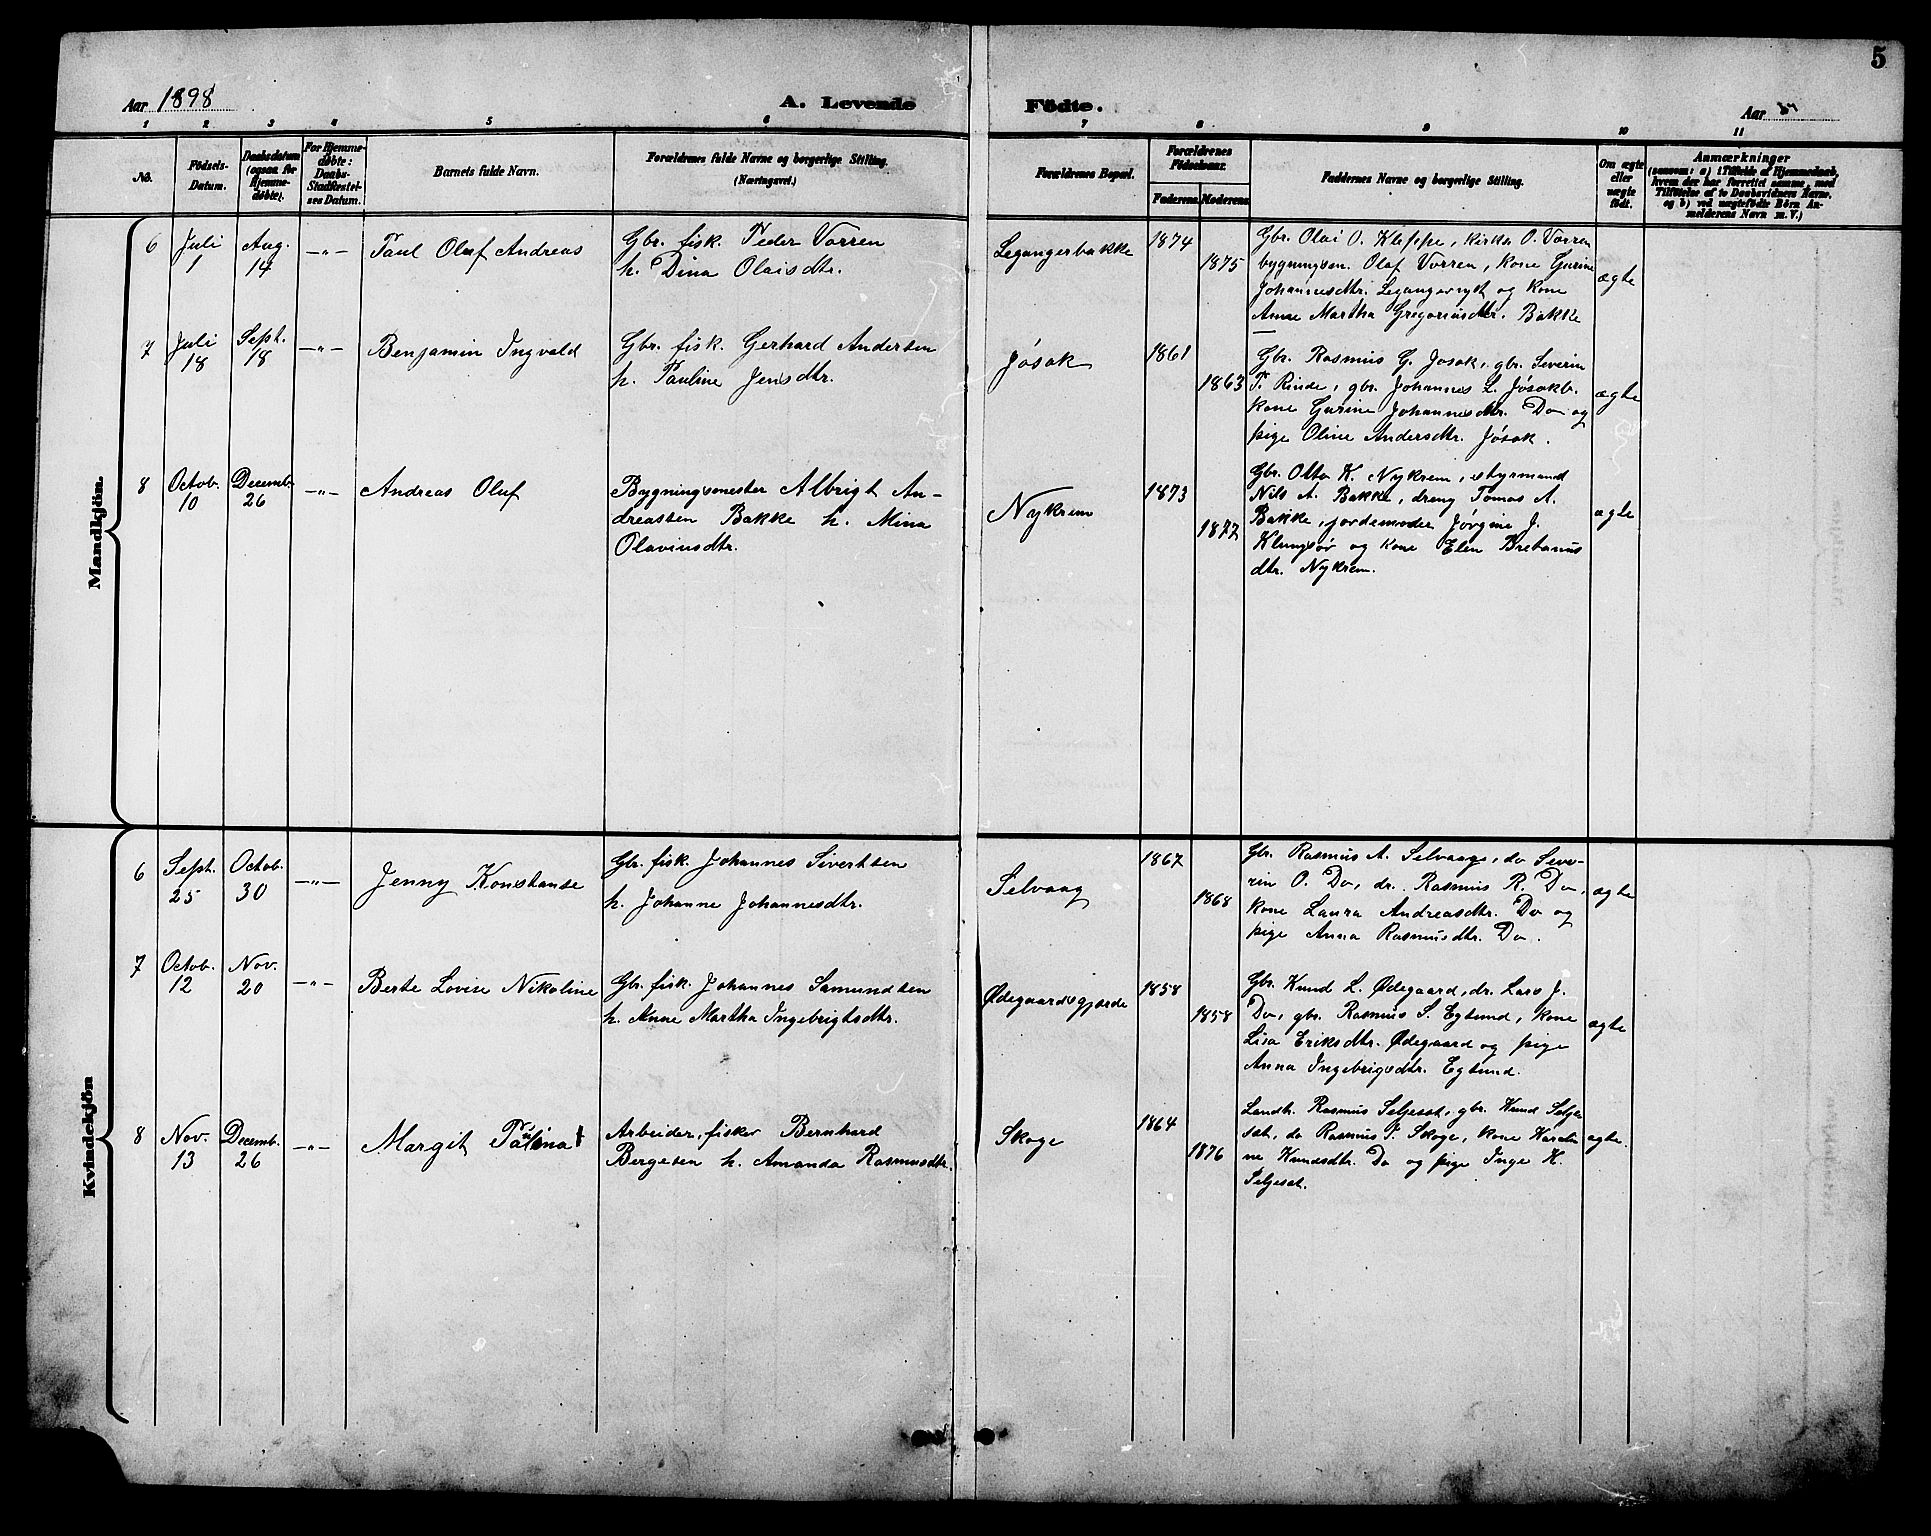 5
Aar 1898
A. Levende
Födte.
Aar
1 2 3 4 5 6 7 8 9 10 11
No.
Födsels-
Datum.
Daabsdatum
(ogsaa for
Hjemme-
døbte).
For Hjemme-
døbte:
Daabs-
Stadfæstel-
ses Datum.
Barnets fulde Navn.
Forældrenes fulde Navne og borgerlige Stilling.
(Næringsvei.)
Forældrenes Bopæl.
Forældrenes
Födselsaar.
Faderens. Moderens.
Faddernes Navne og borgerlige Stilling.
Om ægte
eller
uægte
födt.
Anmærkninger
(saasom: a) i Tilfælde af Hjemmedaab,
hvem der har forrettet samme, med
Tilføielse af to Daabsvidners Navne,
og b) ved uægtefødte Börn An-
melderens Navn m. V.)
Mandkjön.
6
Juli
1
Aug.
14
—„—
Paul Oluf Andreas
Gbr. fisk. Peder Vorren
h. Dina Olaisdtr.
Legangerbakke
1874
1875
Gbr. Olai O. Kleppe, kirks. O. Vorren
bygningsm. Olaf Vorren, kone Gurine
Johannesdtr. Legangernyst og kone
Anne Martha Gregoriusdtr. Bakke
ægte
7
Juli
18
Sept.
18
—„—
Benjamin Ingvald
Gbr. fisk. Gerhard Andersen
h. Pauline Jensdtr.
Jósok
1861
1863
Gbr. Rasmus G. Josok, gbr. Severin
T. Rinde, gbr. Johannes L. Jósokb.
kone Gurine Johannesdtr. Do og
pige Oline Andersdtr. Jósok.
ægte
8
Octob.
10
Decemb.
26
—„—
Andreas Oluf
Bygningsmester Albrigt An-
dreassen Bakke h. Mina
Olaviusdtr.
Nykrem
1873
1877
Gbr. Otto K. Nykrem, styrmand
Nils A. Bakke, dreng Tomas A.
Bakke, jordemoder Jørgine J.
Klungsør og kone Elen Bretanus
dtr. Nykrem.
ægte
Kvindekjön
6
Sept.
25
Octob.
30
—„—
Jenny Konstanse
Gbr. fisk. Johannes Sivertsen
h. Johanne Johannesdtr.
Selvaag
1867
1868
Gbr. Rasmus A. Selvaag, do Seve-
rin O. Do, dr. Rasmus R. Do,
kone Laura Andreasdtr. Do og
pige Anna Rasmusdtr. Do.
ægte
7
Octob.
12
Nov.
20
—„—
Berte Lovise Nikoline
Gbr. fisk. Johannes Samundsen
h. Anne Martha Ingebrigtsdtr.
Ødegaardsgjærde
1858
1858
Gbr. Knud L. Ødegaard, dr. Lars J.
Do, gbr. Rasmus S. Egsund, kone
Lisa Eriksdtr. Ødegaard og pige
Anna Ingebrigsdtr. Egsund.
ægte
8
Nov.
13
Decemb.
26
—„—
Margit Paulina
Arbeider, fisker Bernhard
Bergesen h. Amanda Rasmusdtr.
Skoge
1864
1876
Landh. Rasmus Seljeset, gbr. Knud Selje
set, do Rasmus P. Skoge, kone Karoli
ne Knudsdtr. Do og pige Inge K.
Seljeset.
ægte.